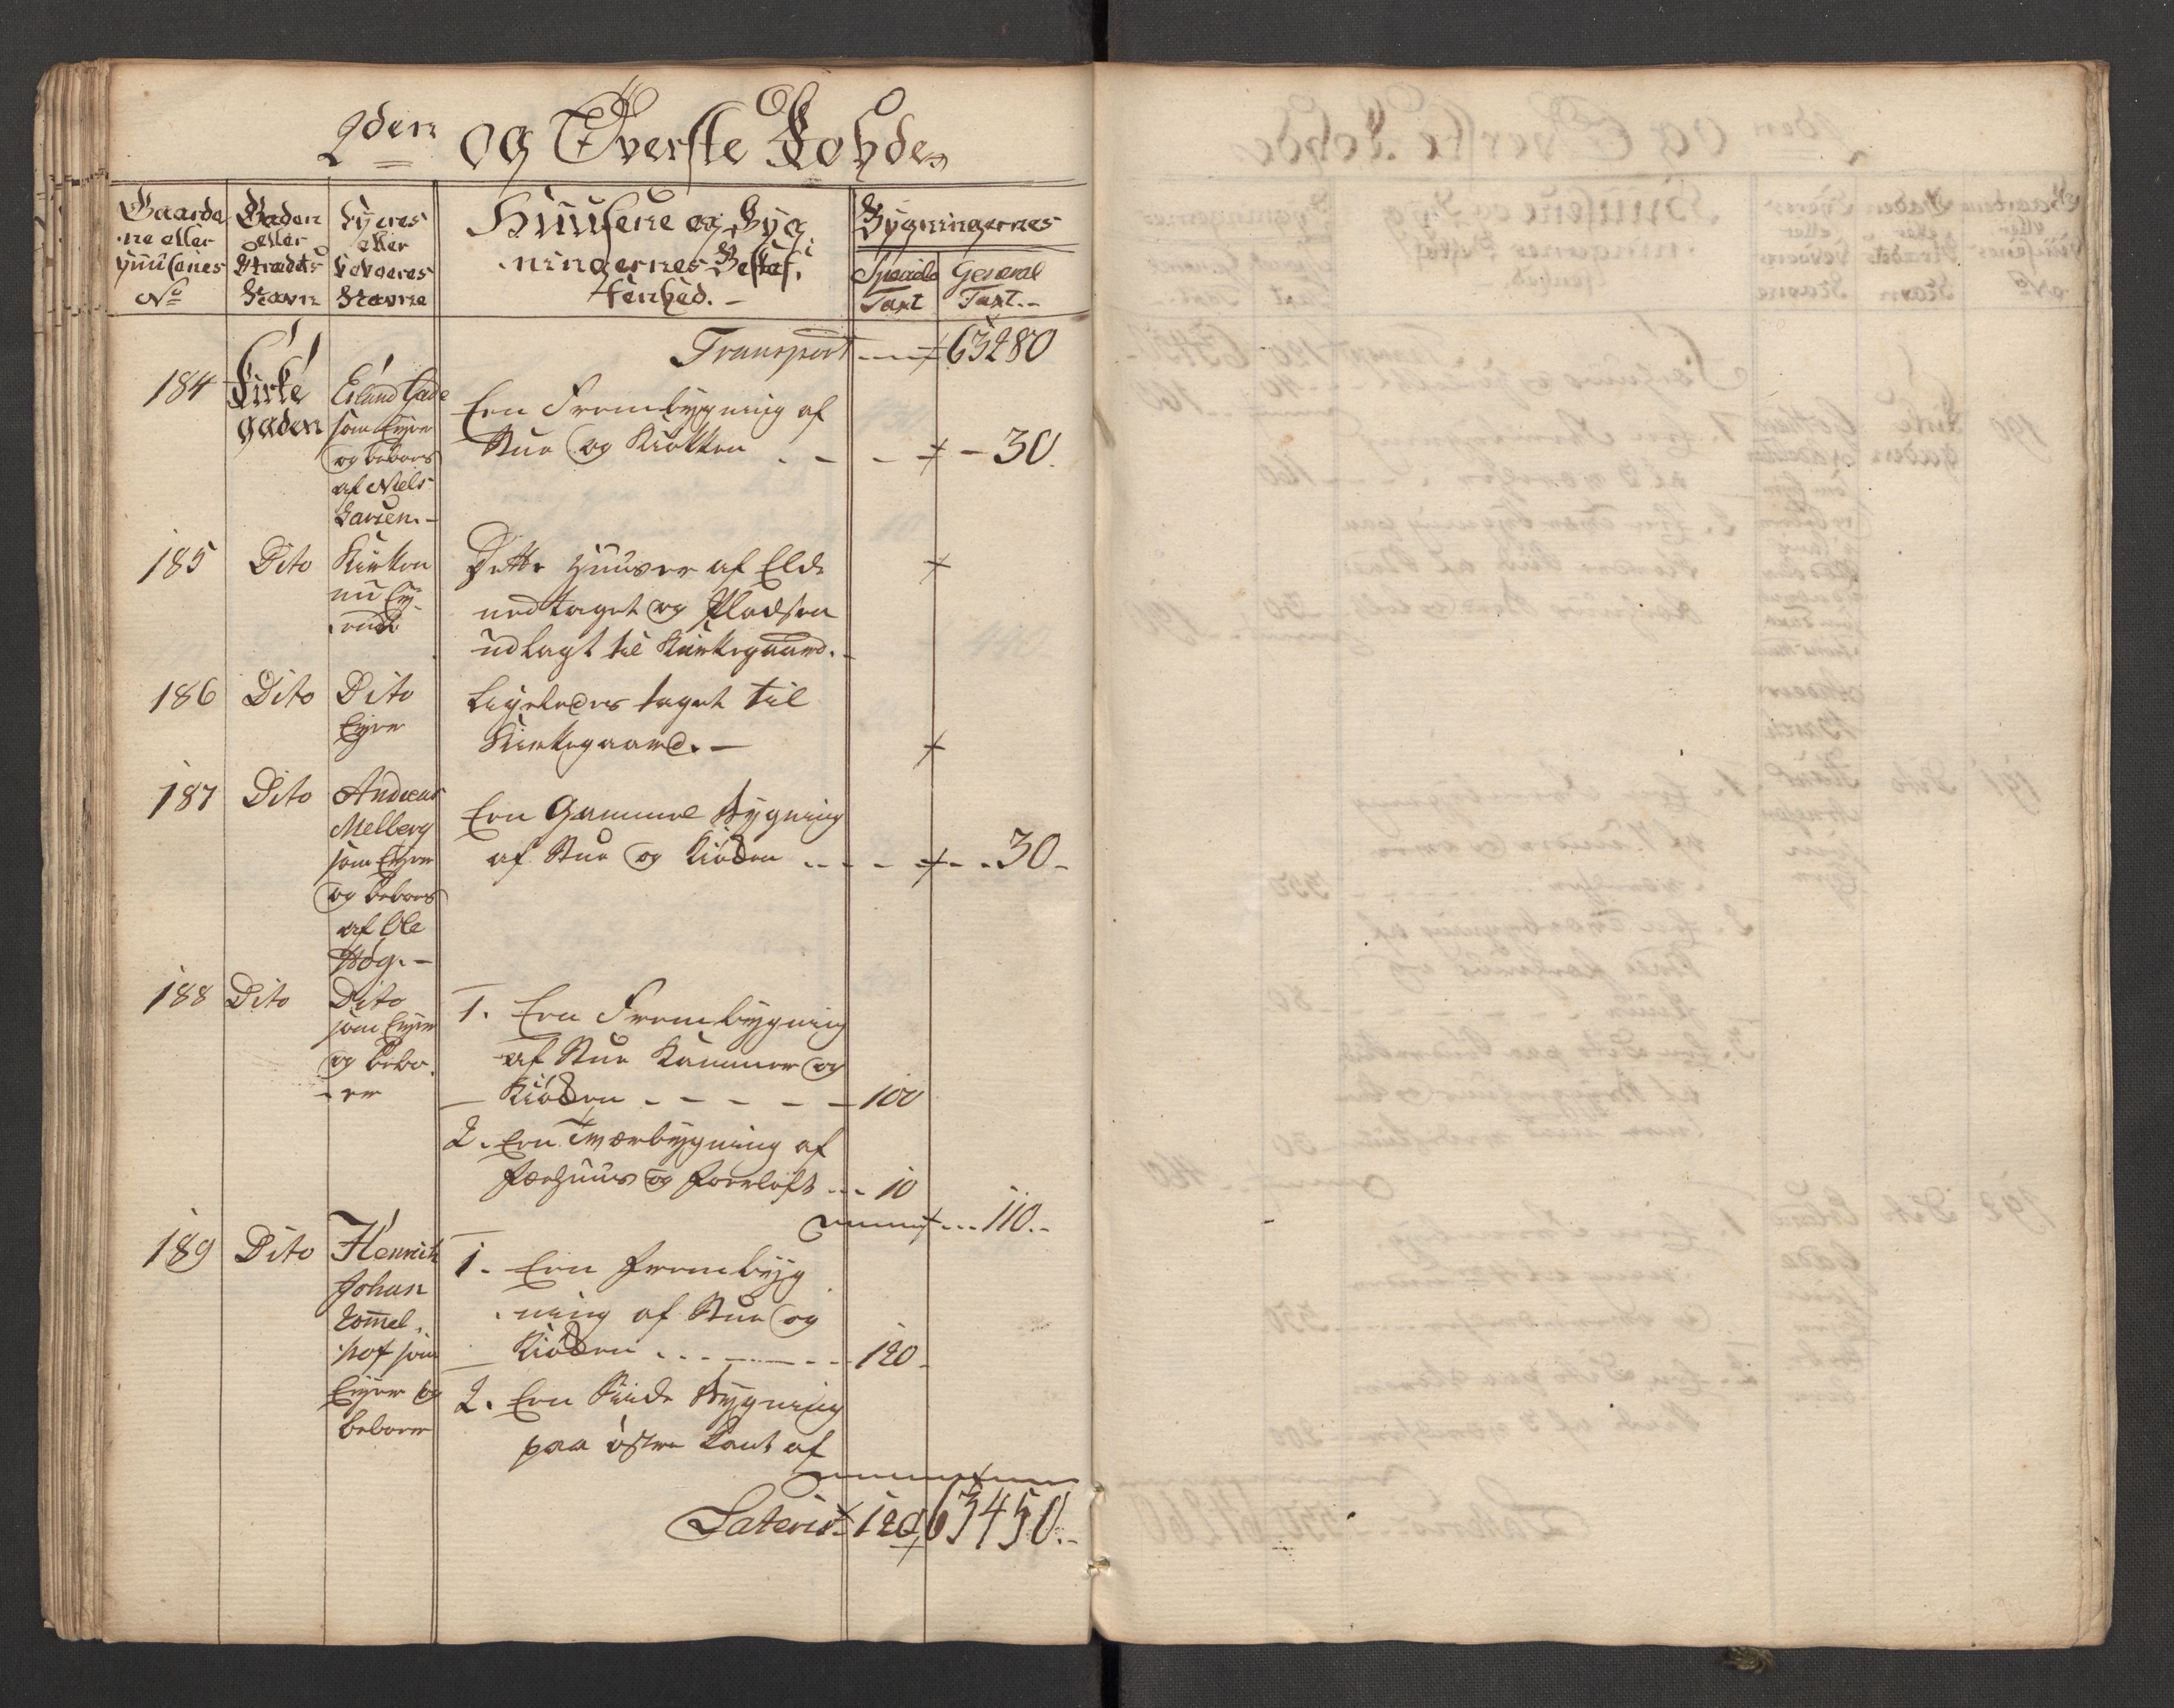 9den og Øverste Rohde
Gaarde
ne eller
Huusenes
No
Gaden
eller
Strædets
Navn
Eyeres
eller
Beboeres
Navne
Huusene og Byg
ningernes Beskaf,
fenhed. –
Bygningernes
Speciale
Taxt
General
Taxt. –
Transport — 63280
184
Kirke
gaden
Erland Gade
som Eyer
og beboes
af Niels
Larsen. –
Een Frembygning af
Stue og Kiøkken - - - 30.
185
Dito
Kirken
nu Ey-
ende
Dette Huus er af Elde
nedtaget og Pladsen
udlagt til Kirkegaard. –
186
Dito
Dito
Eyer
Ligeledes taget til
Kirkegaard. –
187
Dito
Andreas
Melberg
som Eyer
og beboes
af Ole
Høg. –
Een Gammel Bygning
af Stue og Kiøken - - - 30 –
188
Dito
Dito
som Eyer
og bebo-
er
1. Een Frembygning
af Stue Kammer og
Kiøken - - - - - 100
2. Een Tværbygning af
Fæehuus og Foerloft - - - 10
110. –
189
Dito
Henrich
Johan
Lom̅el-
hof som
Eyer og
beboer
1. Een Frembyg
ning af Stue og
Kiøken - - - - 120 –
2. Een Siide Bygning
paa østre Kant af
Lateris 120 63450. –